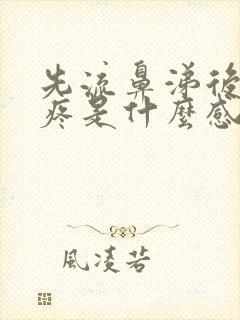 先流鼻涕後
疼是什麼感
風凌若